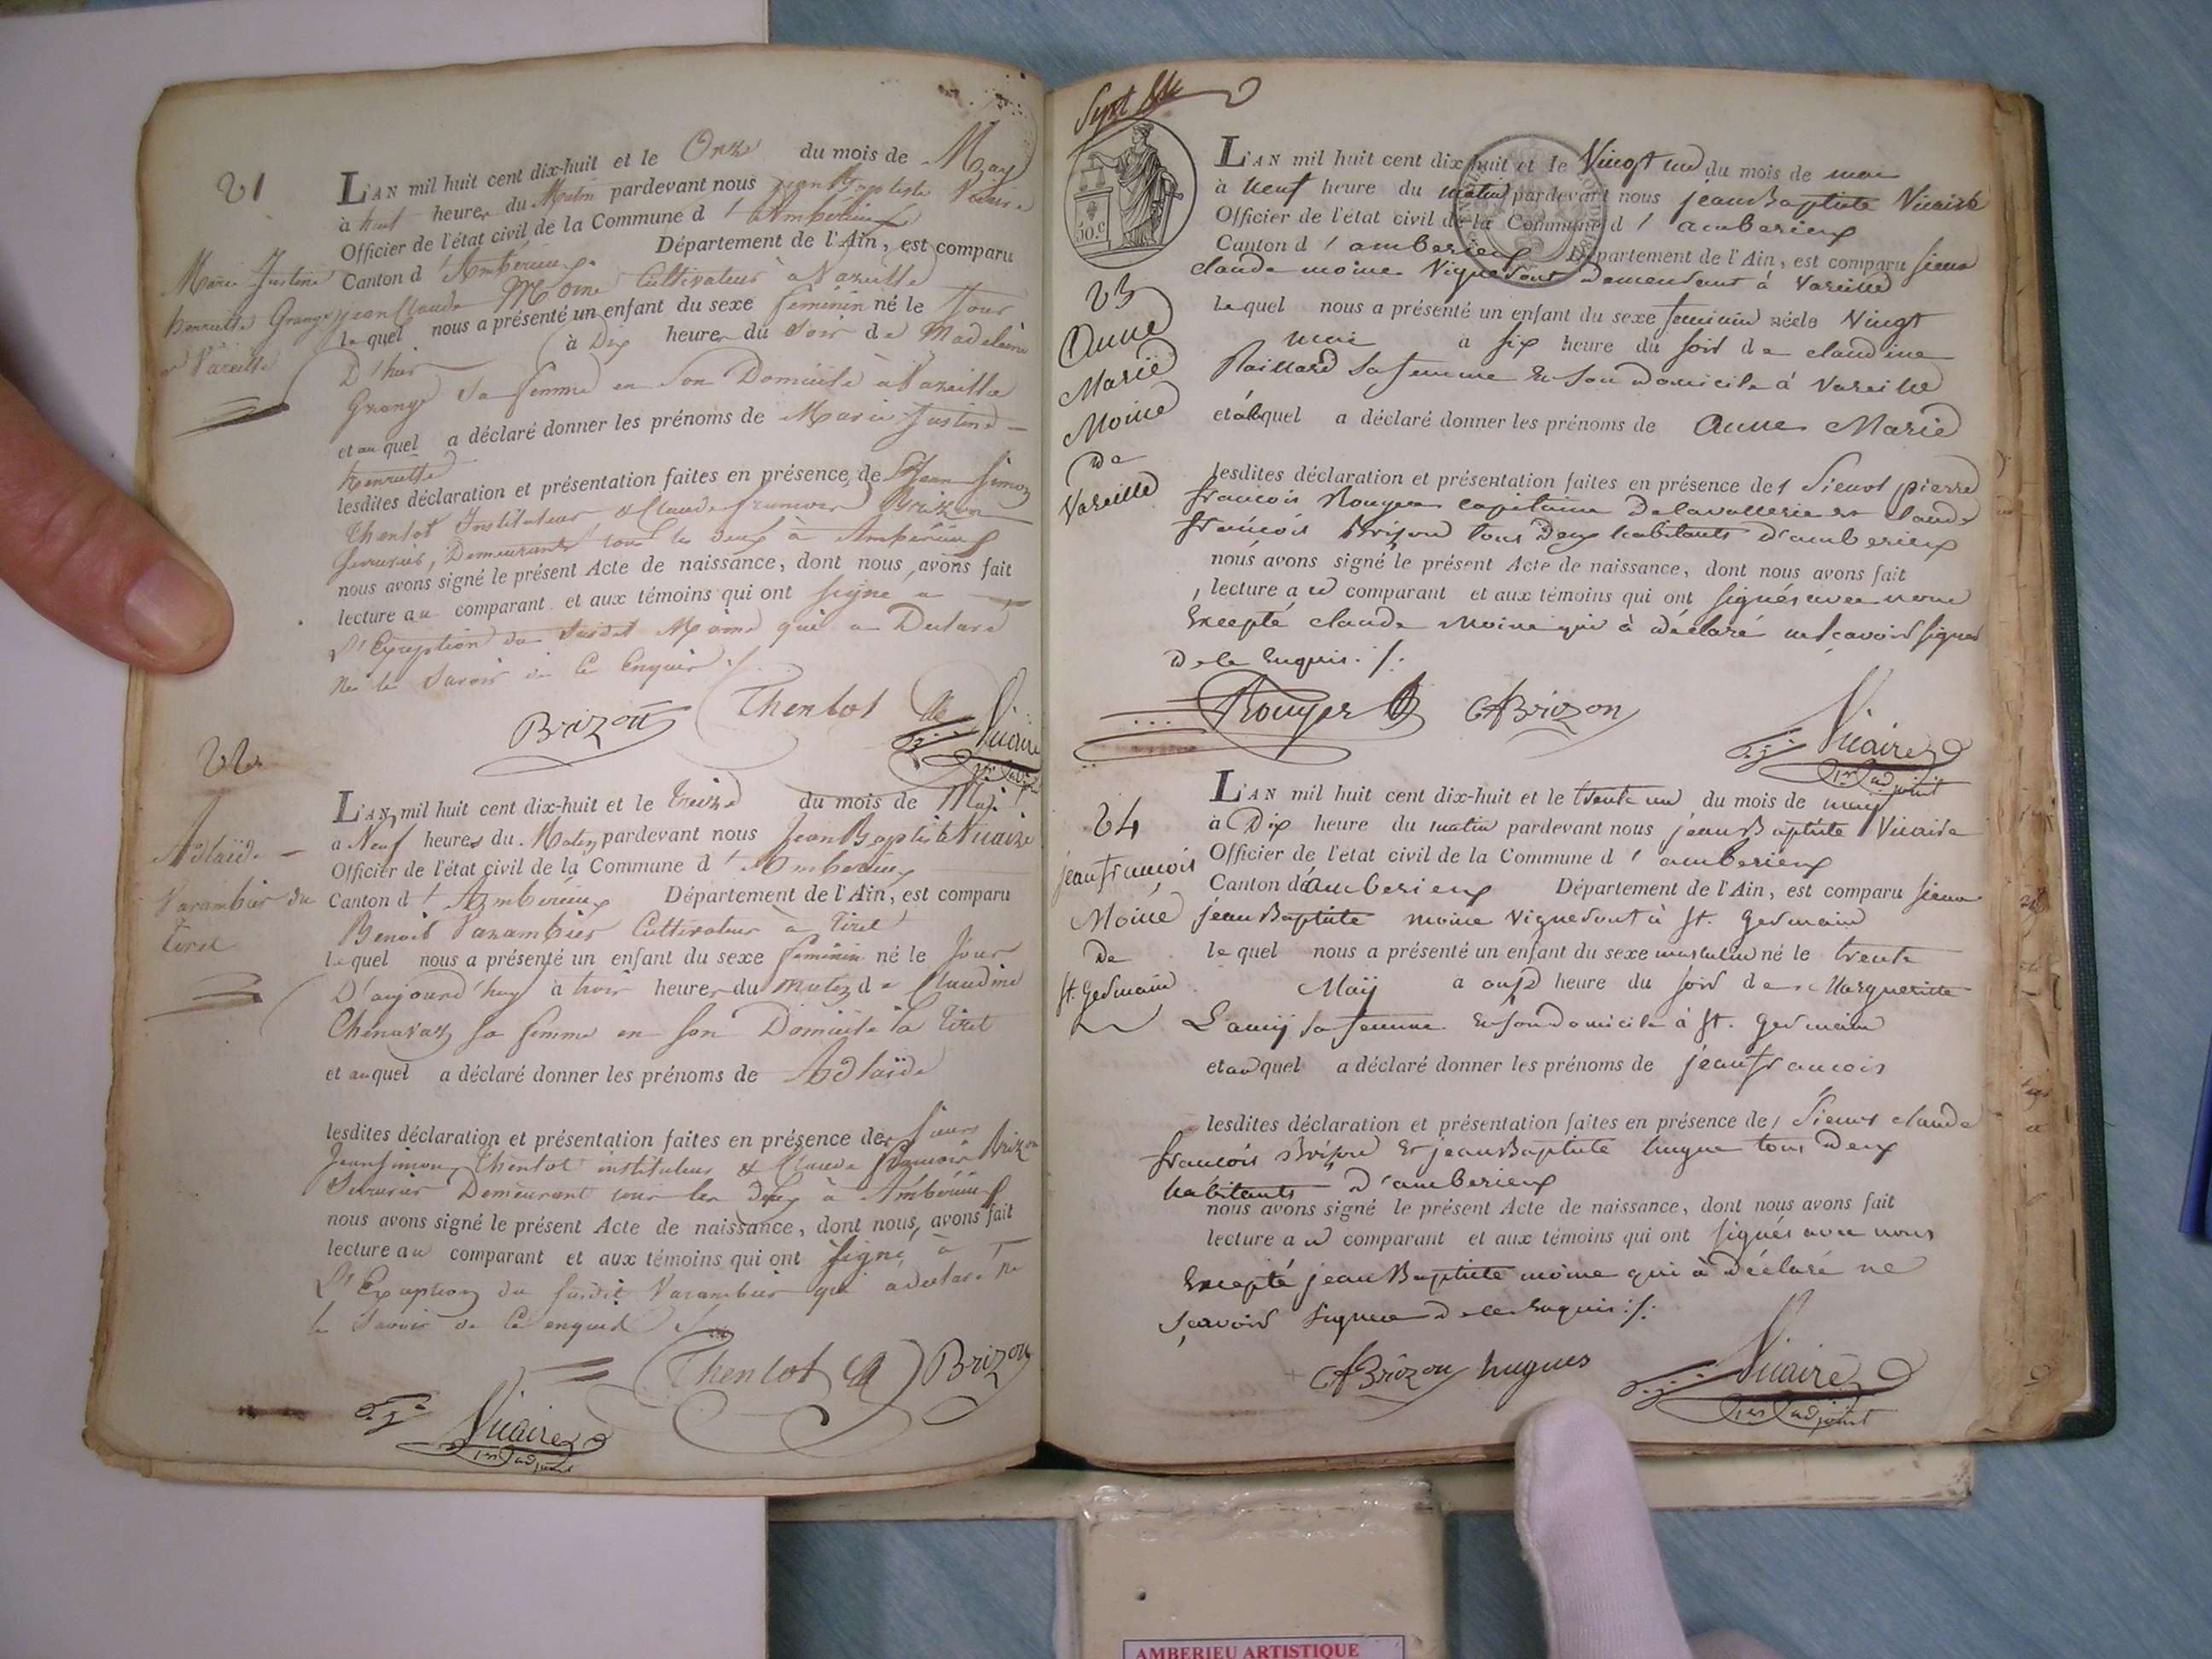 21
Marie Justine
henriette Grange
d Vareille
L'AN mil huit cent dix-huit et le Onze du mois de May
à huit heures du Matin pardevant nous jean Baptiste Vicaire
Officier de l'état civil de la Commune d' Ambérieux
Canton d' Ambérieux Département de l'Ain, est comparu
jean Claude Moine Cultivateur à Vareille
lequel nous a présenté un enfant du sexe féminin né le Jour
D'hier à Dix heures du Soir de Madelaine
Grange sa femme en son Domicile à Vareille
et au quel a déclaré donner les prénoms de Marie Justine
henriette
lesdites déclaration et présentation faites en présence de Jean Simon
Thenlot Instituteur & Claude francois Brizon
Serrurier, Demeurants tous les deux à Ambérieux
nous avons signé le présent Acte de naissance, dont nous avons fait
lecture au comparant et aux témoins qui ont signé a
L'Exception du susdit Moine qui a Déclaré
ne le Savoir de Ce Enquis ./.
Brizon Thenlot Vicaire
22
Adlaïde
Varambier du
Tiret
L'AN mil huit cent dix-huit et le treize du mois de Mai
à Neuf heures du Matin pardevant nous Jean Baptiste Vicaire
Officier de l'état civil de la Commune d' Ambérieux
Canton d' Ambérieux Département de l'Ain, est comparu
Benoit Varambier Cultivateur à Tiret
lequel nous a présenté un enfant du sexe féminin né le Jour
D'aujourd'huy à trois heures du matin de Claudine
sa femme en son Domicile à Tiret
et au quel a déclaré donner les prénoms de Adlaïde
lesdites déclaration et présentation faites en présence des sieurs
Jean Simon Thenlot instituteur & Claude francois Brizon
Serrurier Demeurant tous les deux à Ambérieux
nous avons signé le présent Acte de naissance, dont nous avons fait
lecture au comparant et aux témoins qui ont signé à
L'Exception du susdit Varambier qui a déclaré ne
le Savoir de Ce enquis ./.
Thenlot Brizon
Vicaire
1er adjoint
Sept
50.c
23
Anne
Marie
Moine
de
Vareille
L'AN mil huit cent dix-huit et le Vingt un du mois de mai
à neuf heure du matin pardevant nous jean Baptiste Vicaire
Officier de l'état civil de la Commune d' amberieux
Canton d' amberieux Département de l'Ain, est comparu sieur
claude moine Vigneront demeurant à Vareille
lequel nous a présenté un enfant du sexe feminin née le Vingt
mai à six heure du soir de claudine
Raillard sa femme en son domicile à Vareille
et à laquel a déclaré donner les prénoms de Anne Marie
lesdites déclaration et présentation faites en présence des Sieurs pierre
francois Rouyer capitaine de cavallerie et claude
francois Brizon tous deux habitants d'amberieux
nous avons signé le présent Acte de naissance, dont nous avons fait
lecture au comparant et aux témoins qui ont signés avec nous
Excepté claude moine qui à déclaré ne scavoir signer
de le Enquis ./.
Rouyer CfBrizon
Vicaire
1er adjoint
24
jean francois
Moine
De
St. Germain
L'AN mil huit cent dix-huit et le trente un du mois de may
à Dix heure du matin pardevant nous jean Baptiste Vicaire
Officier de l'état civil de la Commune d' amberieux
Canton d'amberieux Département de l'Ain, est comparu sieur
jean Baptiste moine Vigneront à St. Germain
lequel nous a présenté un enfant du sexe masculin né le trente
Maij à onze heure du soir de Margueritte
Lamij sa femme en son domicile à St. Germain
et au quel a déclaré donner les prénoms de jean francois
lesdites déclaration et présentation faites en présence des Sieurs claude
francois Brizon Et jean Baptiste hugue tous deux
habitants d'amberieux
nous avons signé le présent Acte de naissance, dont nous avons fait
lecture au comparant et aux témoins qui ont signés avec nous
Excepté jean Baptiste moine qui à déclaré ne
sçavoir signer de le Enquis ./.
CfBrizon hugues Vicaire
1er adjoint
AMBERIEU ARTISTIQUE